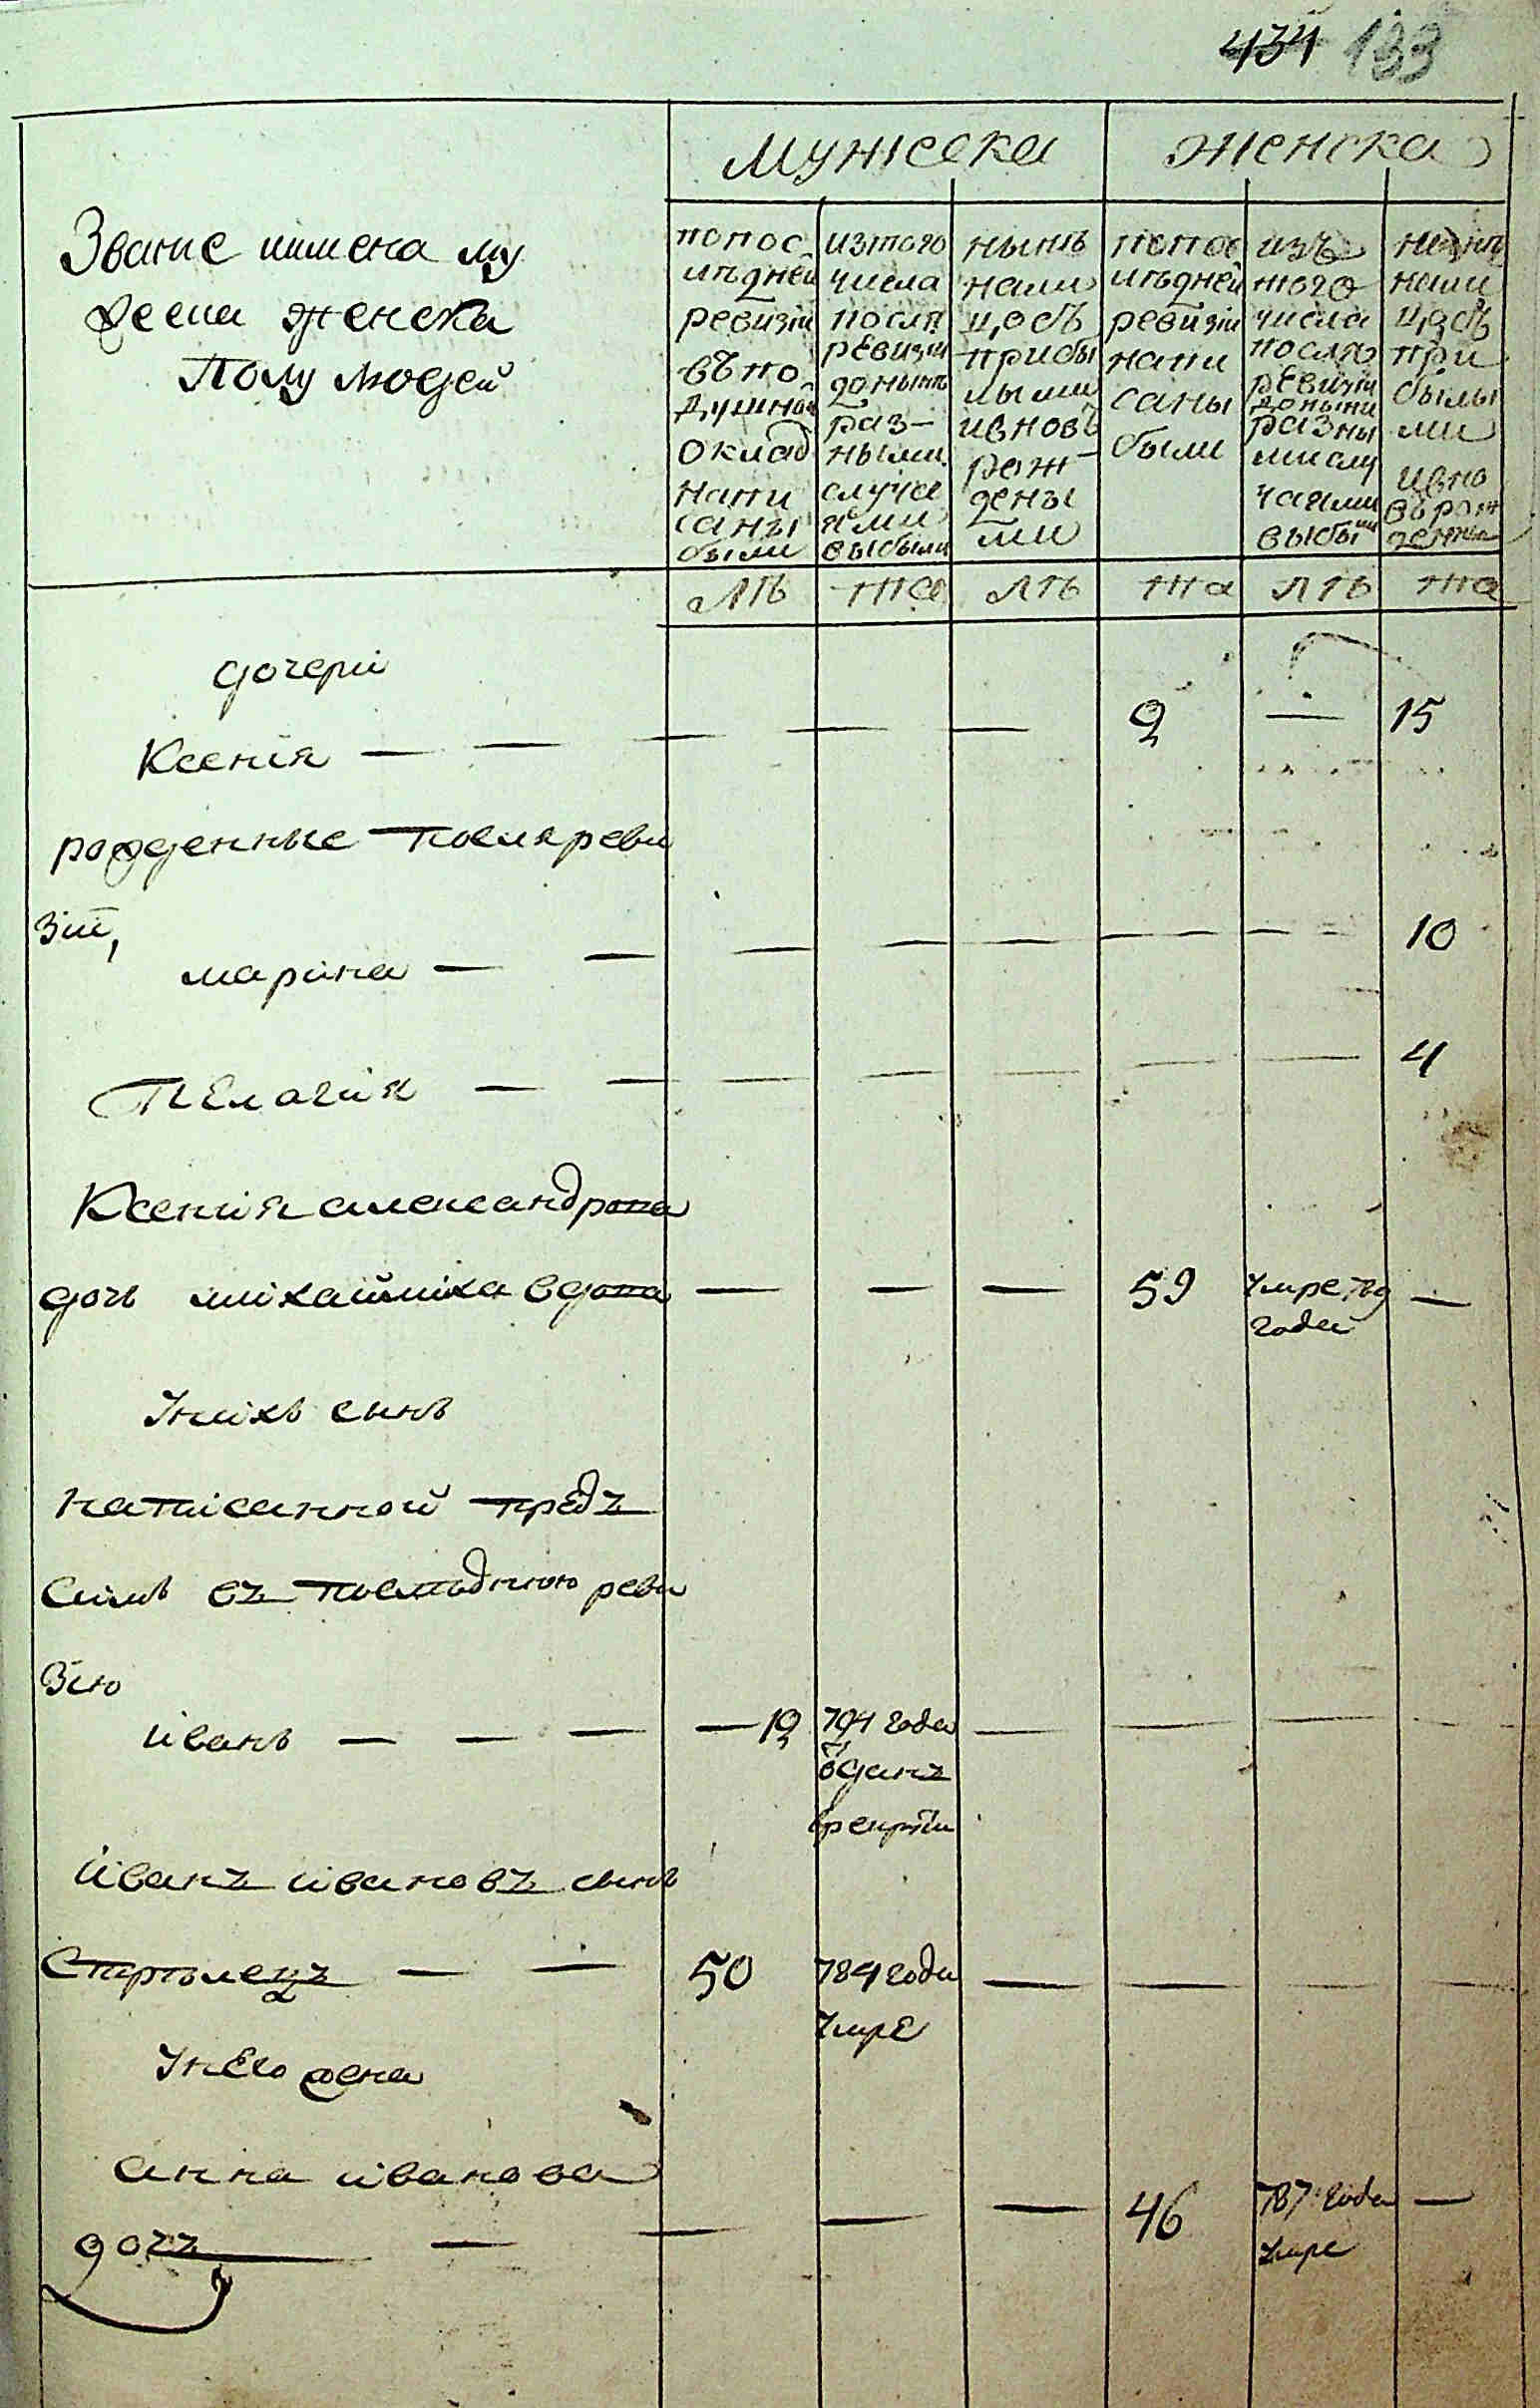 434 133
Мужеска Женска
Звание иимена му
жеска женска
Полу людей
попос
лѣдней
ревизіи
въпо
душной
оклад
напи
саны
были
изтого
числа
послѣ
ревизіи
донынѣ
раз-
ными
случа
ями
выбыли
нынѣ
нали
цобъ
прибы
лыми
ивновь
рож
дены
ми
попос
лѣдней
ревизіи
напи
саны
были
изъ
того
числа
послѣ
ревизіи
донынѣ
разны
мислу
чаями
выбыли
нынѣ
нали
цобъ
при
былы
ми
ивно
вьрож
денны
Лѣ та Лѣ та Лѣ та
дочери
Ксенія — — — — — 2 — 15
рожденные послѣреви
зіи,
марина — — — — — — — 10
Пелагия — — — — — — — 4
Ксения александрова
дочь михайлиха вдова — — — 59 умре —
года
Унихъ сынъ
написанной предъ
Симъ въ последнюю реви
зию
иванъ — — — — 19 794 года — — — —
ѿданъ
врекруты
иванъ ивановъ сынъ
Стрѣлецъ — — 50 784 года — — — —
умре
Унего жена
анна иванова
дочь — — — — 46 787 года —
умре